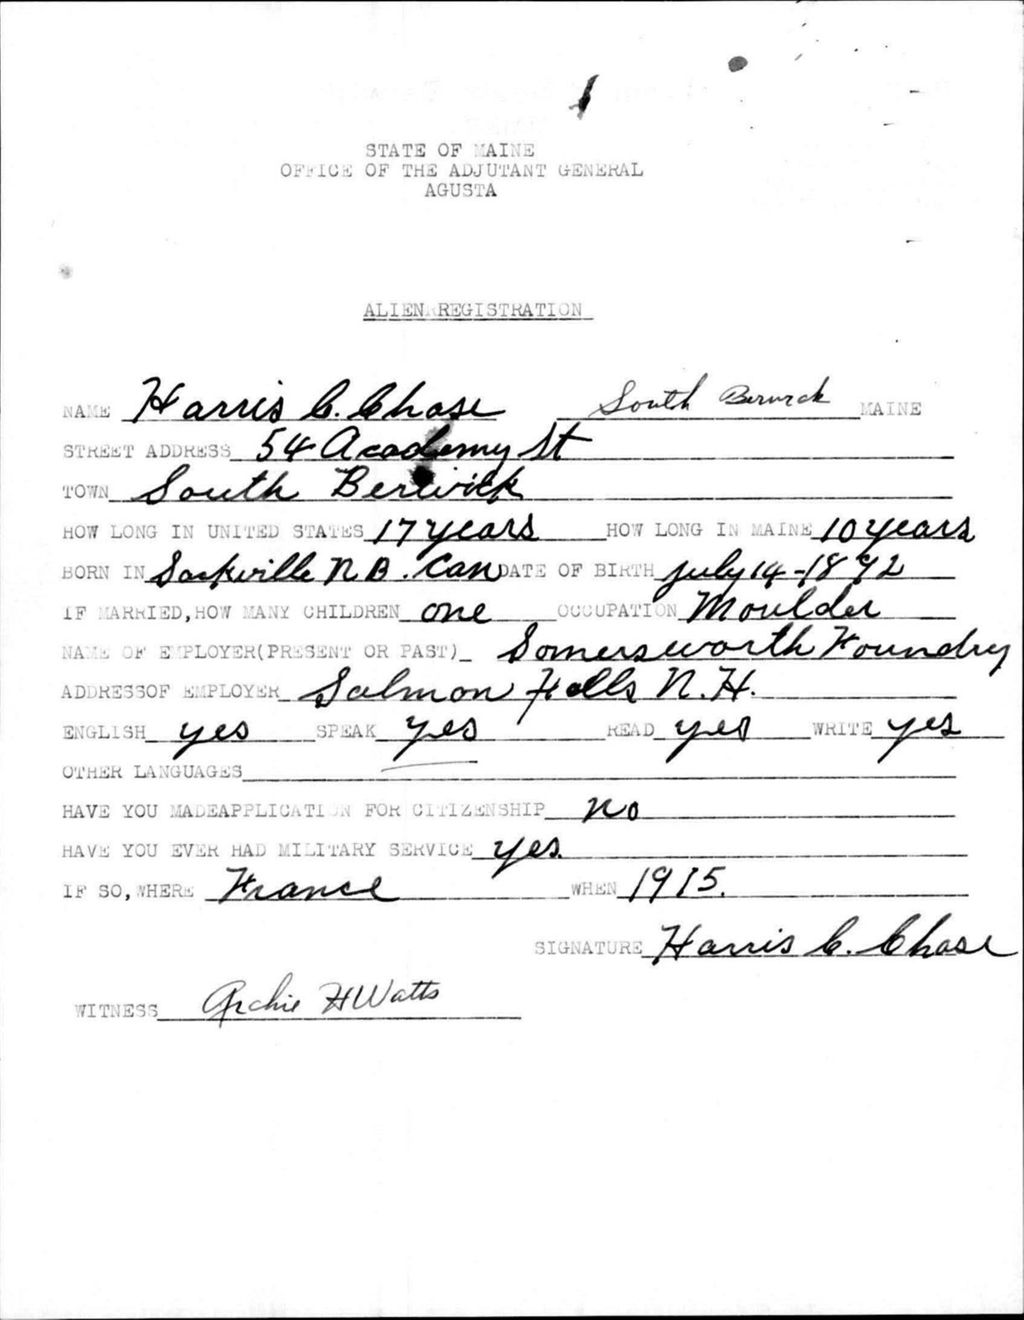 STATE OF MAINE
OFFICE OF THE ADJUTANT GENERAL
AGUSTA
ALIEN REGISTRATION
NAME Harris C. Chase South Berwick MAINE
STREET ADDRESS 54 Academy St
TOWN South Berwick
HOW LONG IN UNITED STATES 17 years HOW LONG IN MAINE 10 years
BORN IN Sackville N B. Can DATE OF BIRTH July 14-1892
IF MARRIED, HOW MANY CHILDREN one OCCUPATION Moulder
NAME OF EMPLOYER(PRESENT OR PAST) Somersworth Foundry
ADDRESSOF EMPLOYER Salmon Falls N.H.
ENGLISH yes SPEAK yes READ yes WRITE yes
OTHER LANGUAGES
HAVE YOU MADEAPPLICATION FOR CITIZENSHIP no
HAVE YOU EVER HAD MILITARY SERVICE yes.
IF SO, WHERE France WHEN 1915.
SIGNATURE Harris C. Chase
WITNESS Archie H Watts